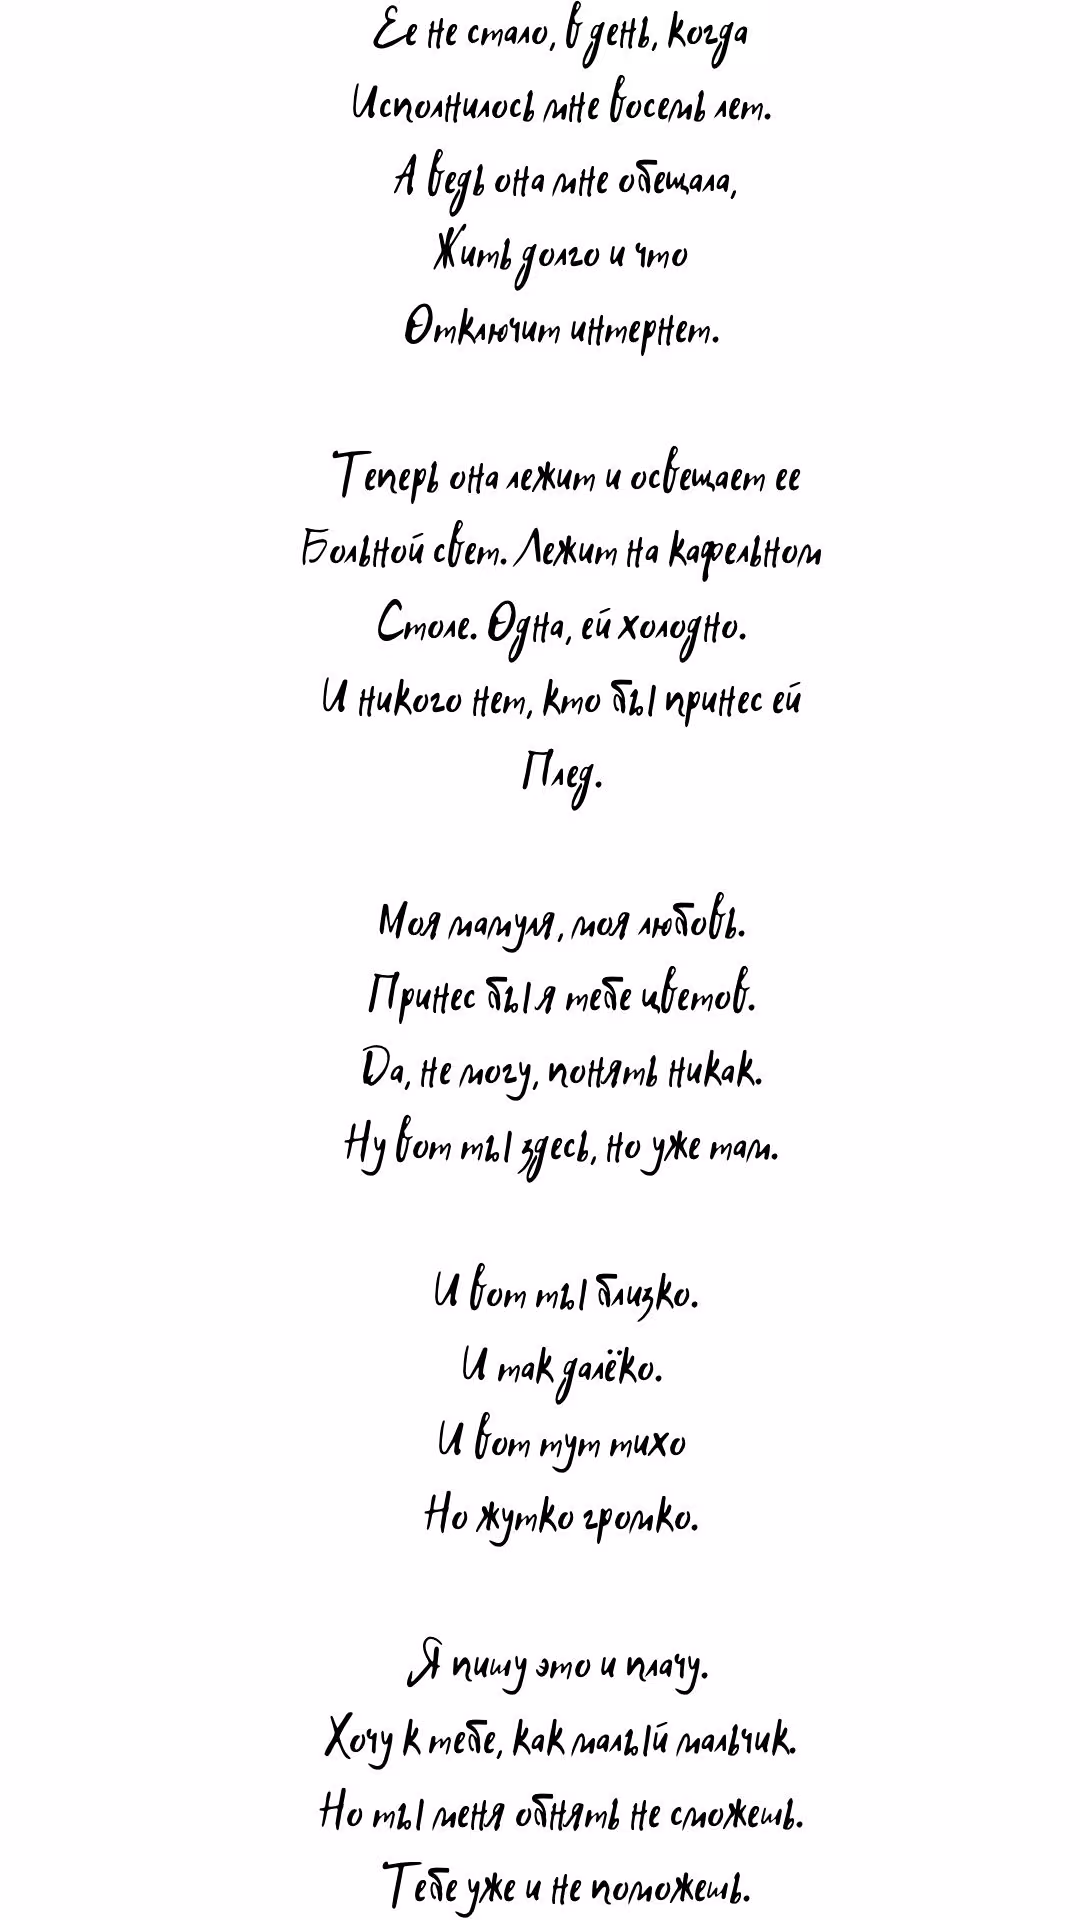 Ее не стало, в день, когда
Исполнилось мне восемь лет.
А ведь она мне обещала,
Жить долго и что
Отключит интернет.
Теперь она лежит и освещает ее
Больной свет. Лежит на кафельном
Столе. Одна, ей холодно.
И никого нет, кто бы принес ей
Плед.
Моя мамуля, моя любовь.
Принес бы я тебе цветов.
Да, не могу, понять никак.
Ну вот ты здесь, но уже там.
И вот ты близко.
И так далёко.
И вот тут тихо
Но жутко громко.
Я пишу это и плачу.
Хочу к тебе, как малый мальчик.
Но ты меня обнять не сможешь.
Тебе уже и не поможешь.